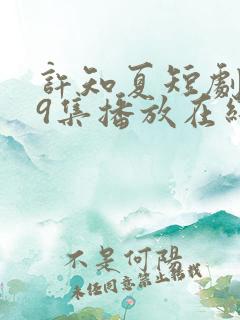 許知夏短劇
9集播放在線
不是何陽
未任同意禁止轉載